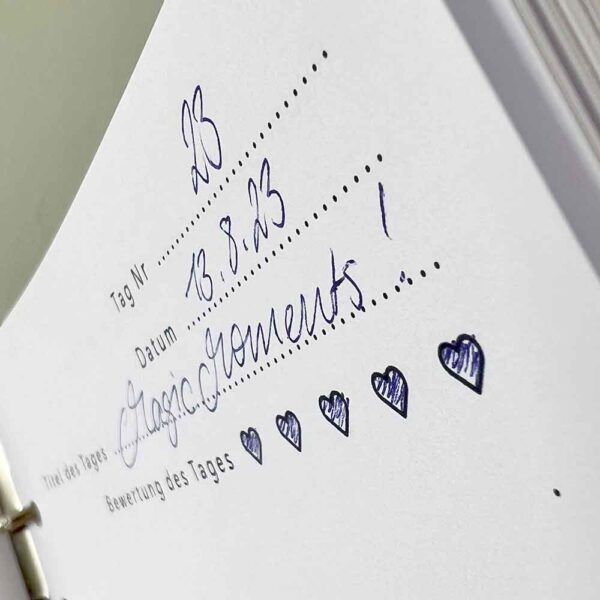 Tag Nr 23
Datum 13.8.23
Titel des Tages Magic Moments!
Bewertung des Tages